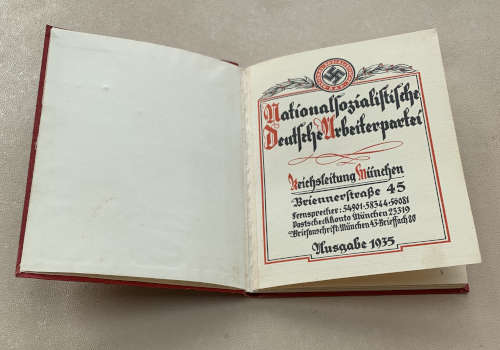 Nationalsozialistische
Deutsche Arbeiterpartei
Reichsleitung München
Briennerstraße 45
Fernsprecher: 54901-58344-56081
Postscheckkonto München 23319
Briefanschrift: München 43-Brieffach 80
Ausgabe 1935